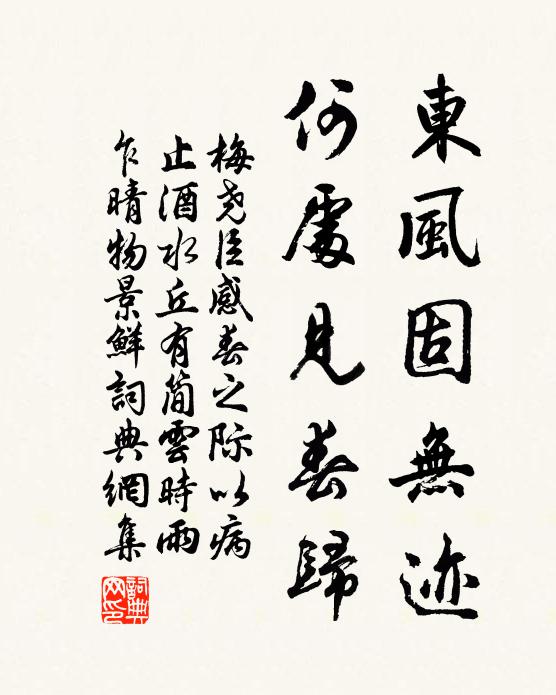 東風固無迹
何處見春歸
梅尧臣感春之际以病
止酒水丘有简雲時雨
乍晴物景鮮詞典網集
詞典
网印